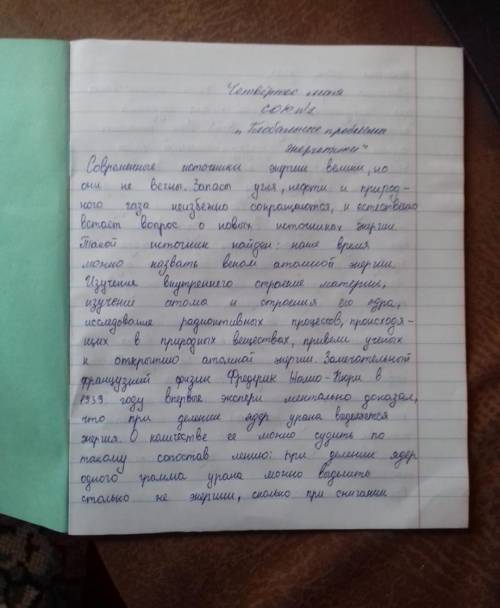 Четвёртое мая
СОЮ№2
"Глобальные проблемы
энергетики"
Современные источники энергии велики, но
они не вечны. Запасы угля, нефти и природ-
ного газа неизбежно сокращаются, и естественно
встаёт вопрос о новых источниках энергии.
Такой источник найден: наше время
можно назвать веком атомной энергии.
Изучение внутреннего строение материи,
изучение атома и строения его ядра,
исследование радиоктивных процессов, происходя-
щих в природных веществах, привели учёных
к открытию атомной энергии. Замечательной
французский физик Фредерик Жолио-Кюри в
1939 году впервые экспери ментально доказал,
что при делении ядер урана выделяется
энергия. О количестве ее можно судить по
такому сопостав лению: при делении ядер
одного грамма урана можно выделить
столько же энергии, сколько при сжигании